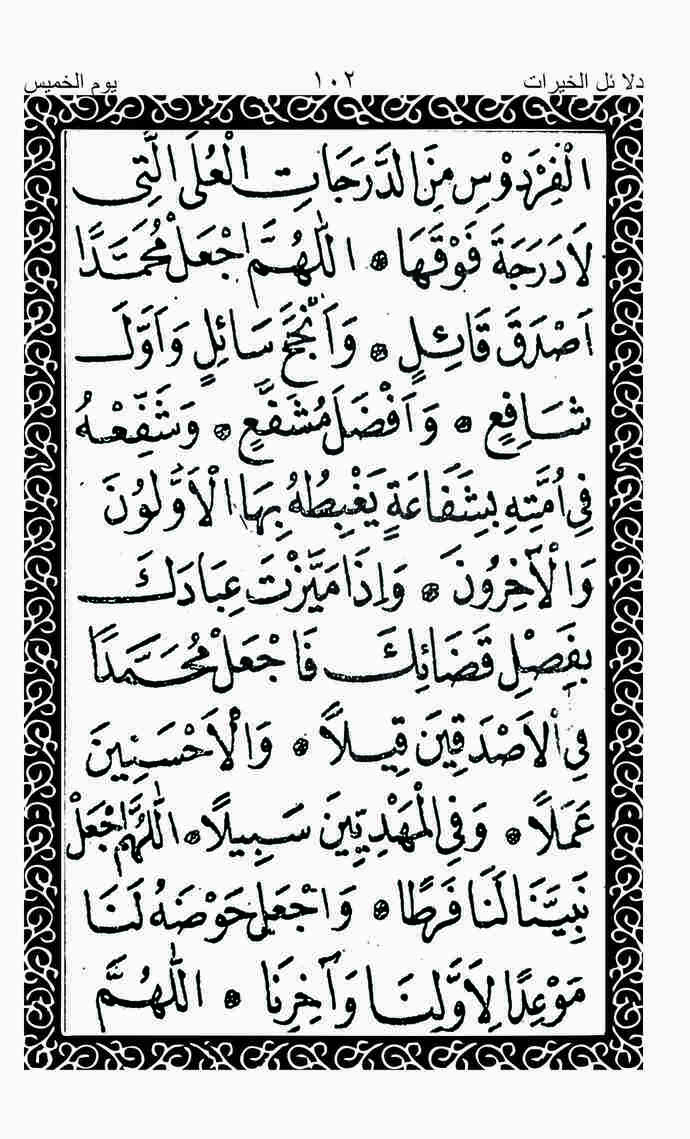 دلائل الخيرات ١٠٢ يوم الخميس
الْفِرْدَوْسِ مِنَ الدَّرَجَاتِ الْعُلَى الَّتِى
لَادَرَجَةَ فَوْقَهَا ۞ اَللّٰهُمَّ اجْعَلْ مُحَمَّدًا
اَصْدَقَ قَائِلٍ ۞ وَاَنْجَحَ سَائِلٍ وَاَوَّلَ
شَافِعٍ ۞ وَاَفْضَلَ مُشَفَّعٍ ۞ وَشَفِّعْهُ
فِى اُمَّتِهِ بِشَفَاعَةٍ يَغْبِطُهُ بِهَا الْاَوَّلُونَ
وَالْآخِرُونَ ۞ وَاِذَا مَيَّزْتَ عِبَادَكَ
بِفَصْلِ قَضَائِكَ فَاجْعَلْ مُحَمَّدًا
فِى الْاَصْدَقِينَ قِيلًا ۞ وَالْاَحْسَنِينَ
عَمَلًا ۞ وَفِى الْمَهْدِيِّينَ سَبِيلًا ۞ اَللّٰهُمَّ اجْعَلْ
نَبِيَّنَا لَنَا فَرَطًا ۞ وَاجْعَلْ حَوْضَهُ لَنَا
مَوْعِدًا لِاَوَّلِنَا وَآخِرِنَا ۞ اَللّٰهُمَّ